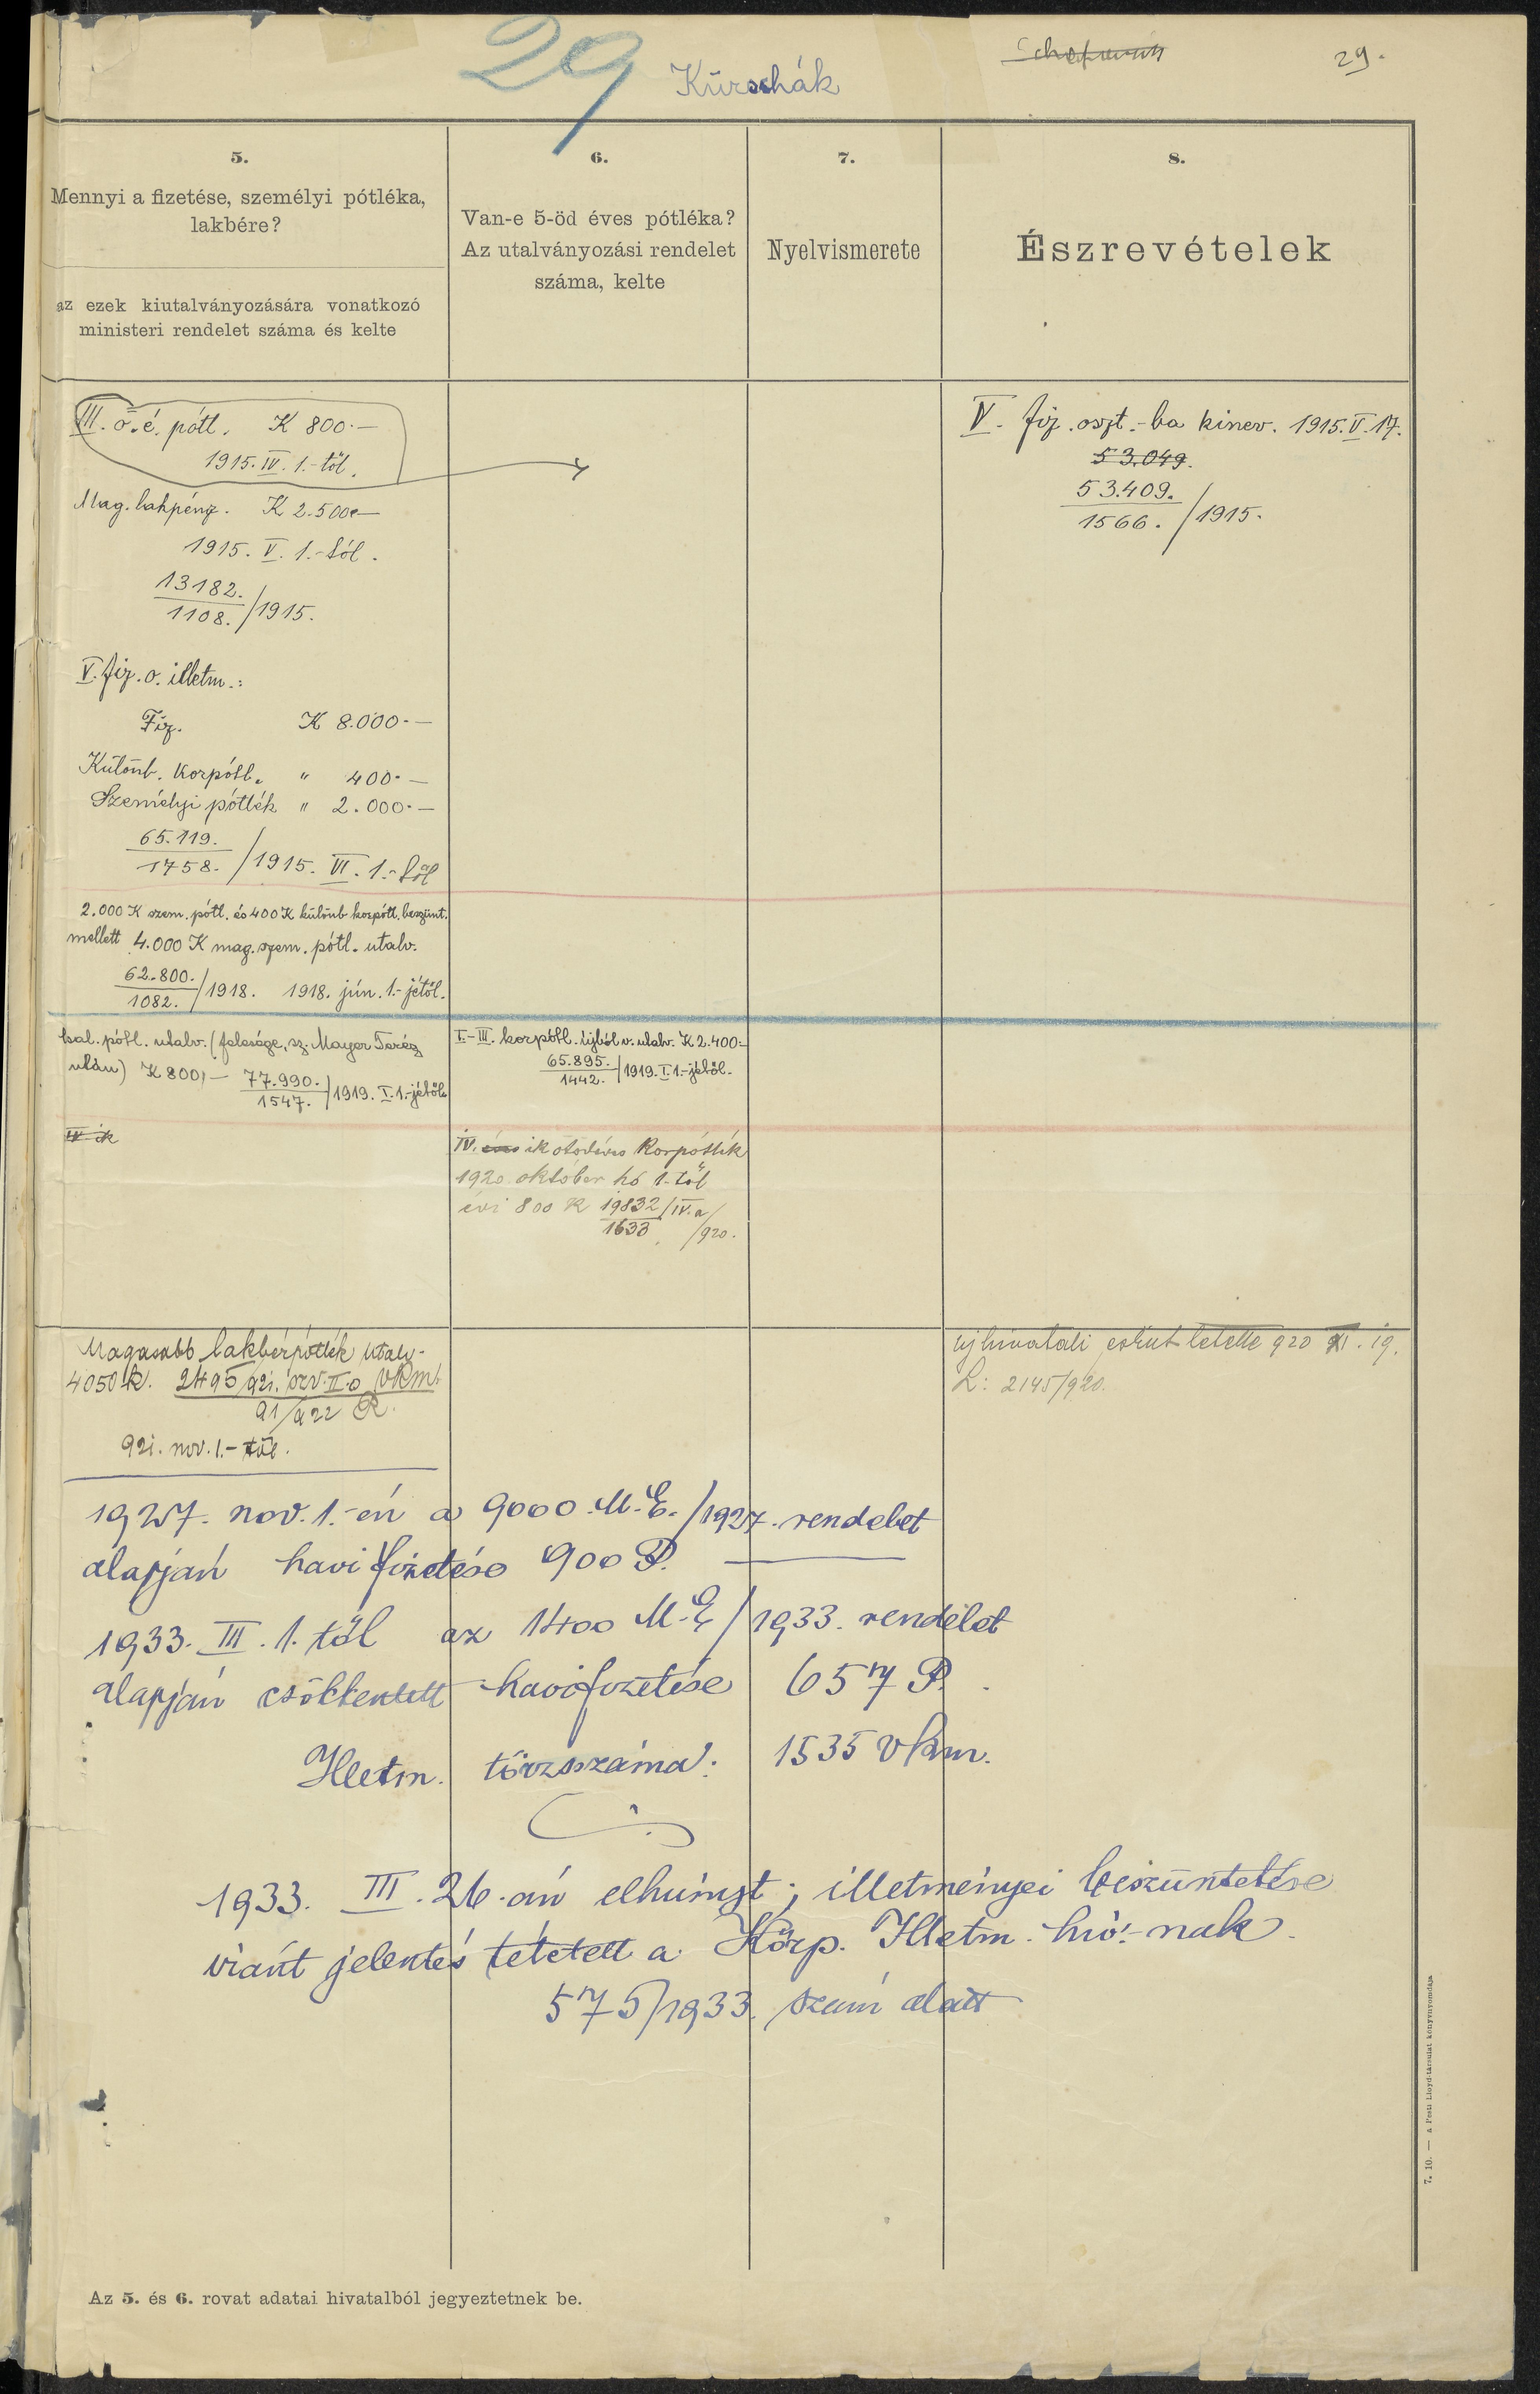 29
Kürschák
29.
5.
Mennyi a fizetése, személyi pótléka,
lakbére?
az ezek kiutalványozására vonatkozó
ministeri rendelet száma és kelte
6.
Van-e 5-öd éves pótléka?
Az utalványozási rendelet
száma, kelte
7.
Nyelvismerete
8.
Észrevételek
III. ö. é. pótl. K 800.—
1915. IV. 1.-től.
Mag. lakpénz. K 2.500.—
1915. V. 1.-től.
13182.
1108. /1915.
V. fiz. o. illetm.:
Fiz. K 8.000.—
Különb. korpótl. " 400.—
Személyi pótlék " 2.000.—
65.119.
1758. /1915. VI. 1.-től
2.000 K szem. pótl. és 400 K különb. korpótl. beszünt.
mellett 4.000 K mag. szem. pótl. utalv.
62.800.
1082. /1918. 1918. jún. 1.-jétől.
csal. pótl. utalv. (felesége, sz. Mayer Teréz
után) K 800,— 77.990.
1547. /1919. I. 1.-jétől
IV-ik
I.-III. korpótl. újból v. utalv. K 2.400.—
65.895.
1442. /1919. I. 1.-jétől.
IV. ik ötödéves Korpótlék
1920. október hó 1-től
évi 800 K 19832/IV.a
1633 /920.
V. fiz. oszt.-ba kinev. 1915. V. 17.
53.049.
53.409.
1566. /1915.
Magasabb lakbérpótlék utalv.
4050 K. 2495/921. szv. II. o vkm.
91/922 R.
921. nov. 1.-től.
Uj hivatali esküt letette 920 XI. 19.
L: 2145/920.
1927. nov. 1.-én a 9000. M. E./1927. rendelet
alapján havi fizetése 900 P.
1933. III. 1. től az 1400 M. E/1933. rendelet
alapján csökkentett havi fizetése 657 P.
Illetm. törzsszáma: 1535 vkm.
1933. III. 26.-án elhunyt; illetményei beszüntetése
iránt jelentés tétetett a Közp. Illetm. hiv.-nak
575/1933. szám alatt
Az 5. és 6. rovat adatai hivatalból jegyeztetnek be.
7. 10. — A Pesti Lloyd-társulat könyvnyomdája